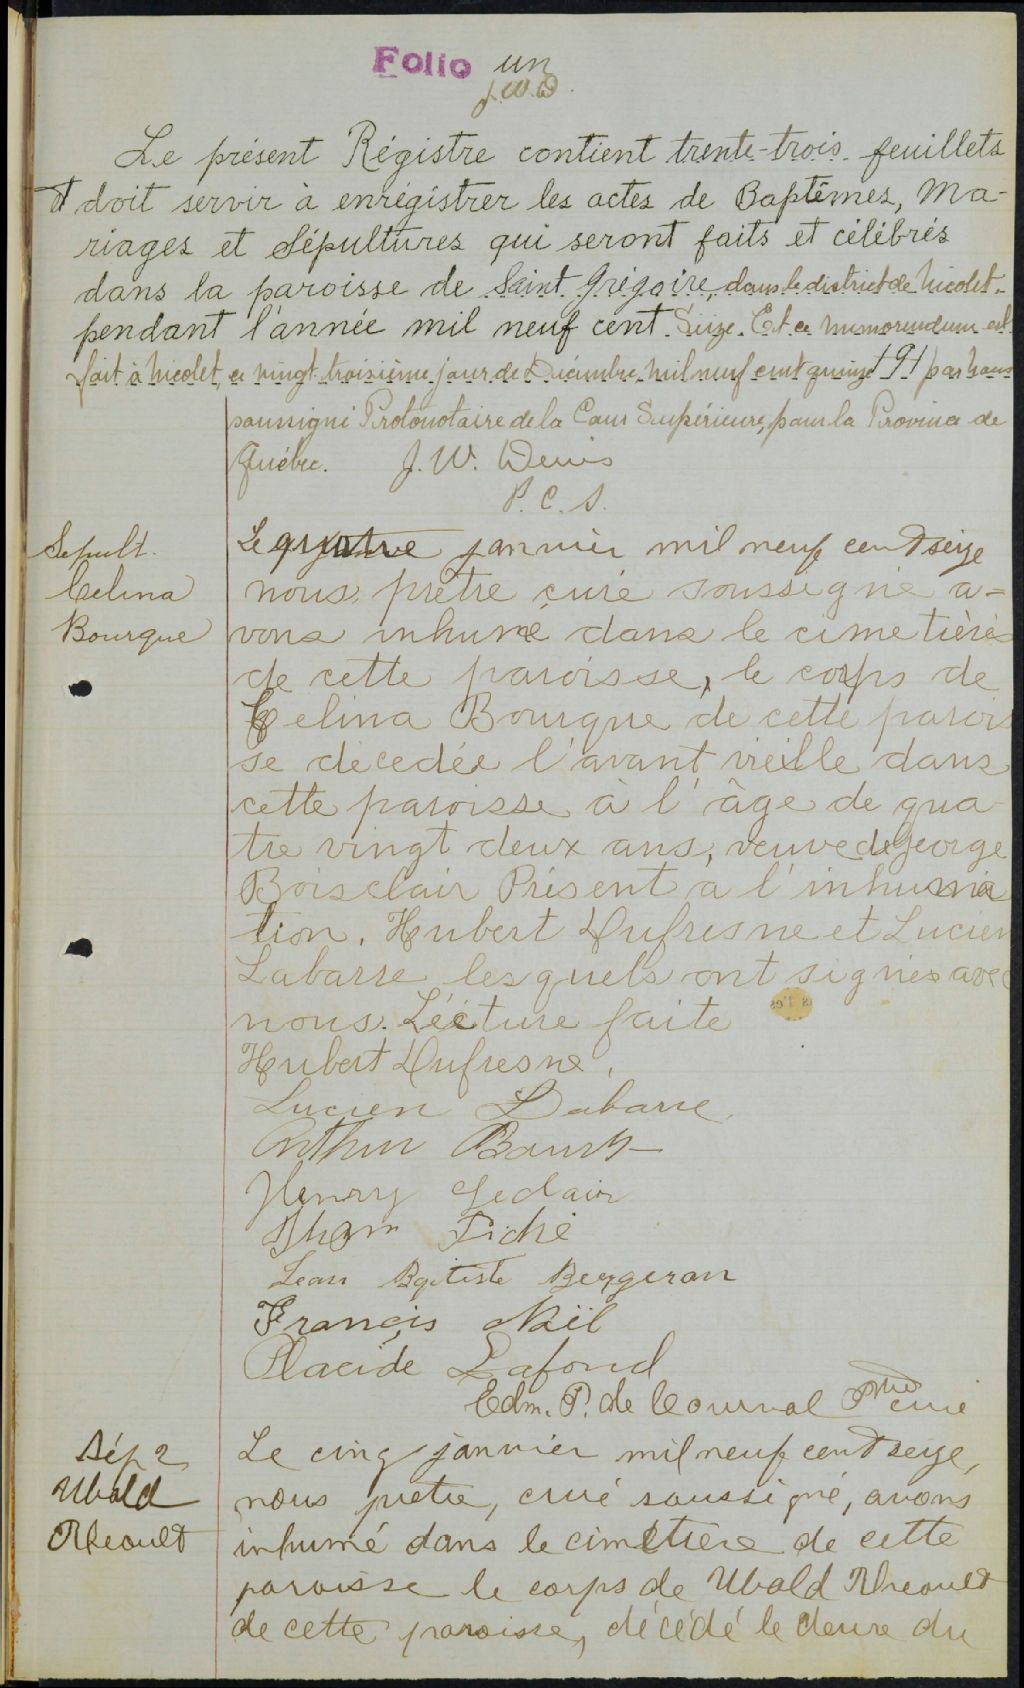 Folio un
J.W.D.
Le présent Régistre contient trente-trois feuillets
et doit servir à enrégistrer les actes de Baptêmes, Ma-
riages et Sépultures qui seront faits et célébrés
dans la paroisse de Saint Grégoire, dans le district de Nicolet,
pendant l'année mil neuf cent Seize. Et ce memorandum est
fait à Nicolet, ce vingt troisième jour de Décembre mil neuf cent quinze par nous
soussigné Protonotaire de la Cour Supérieure, pour la Province de
Québec. J. W. Denis
P. C. S.
Sepult.
Celina
Bourque
Le quatre janvier mil neuf cent seize
nous, prêtre curé soussigné a-
vons inhumé dans le cimetière
de cette paroisse, le corps de
Celina Bourque de cette parois
se décedée l'avant vieille dans
cette paroisse à l'âge de qua-
tre vingt deux ans, veuve de George
Boisclair Présent a l'inhuma
tion. Hubert Dufresne et Lucien
Labarre lesquels ont signés avec
nous. Lécture faite
Hubert Dufresne.
Lucien Labarre
Arthur
Henry
Piché
Jean Bptiste Bergeron
Francis Noël
Placide Lafond
Edm. P. de Courval Ptre curé
Sép 2
Ubald
Rheault
Le cinq janvier mil neuf cent seize,
nous pretre, curé soussigné, avons
inhumé dans le cimetière de cette
paroisse le corps de Ubald Rheault
de cette paroisse, décédé le deux du